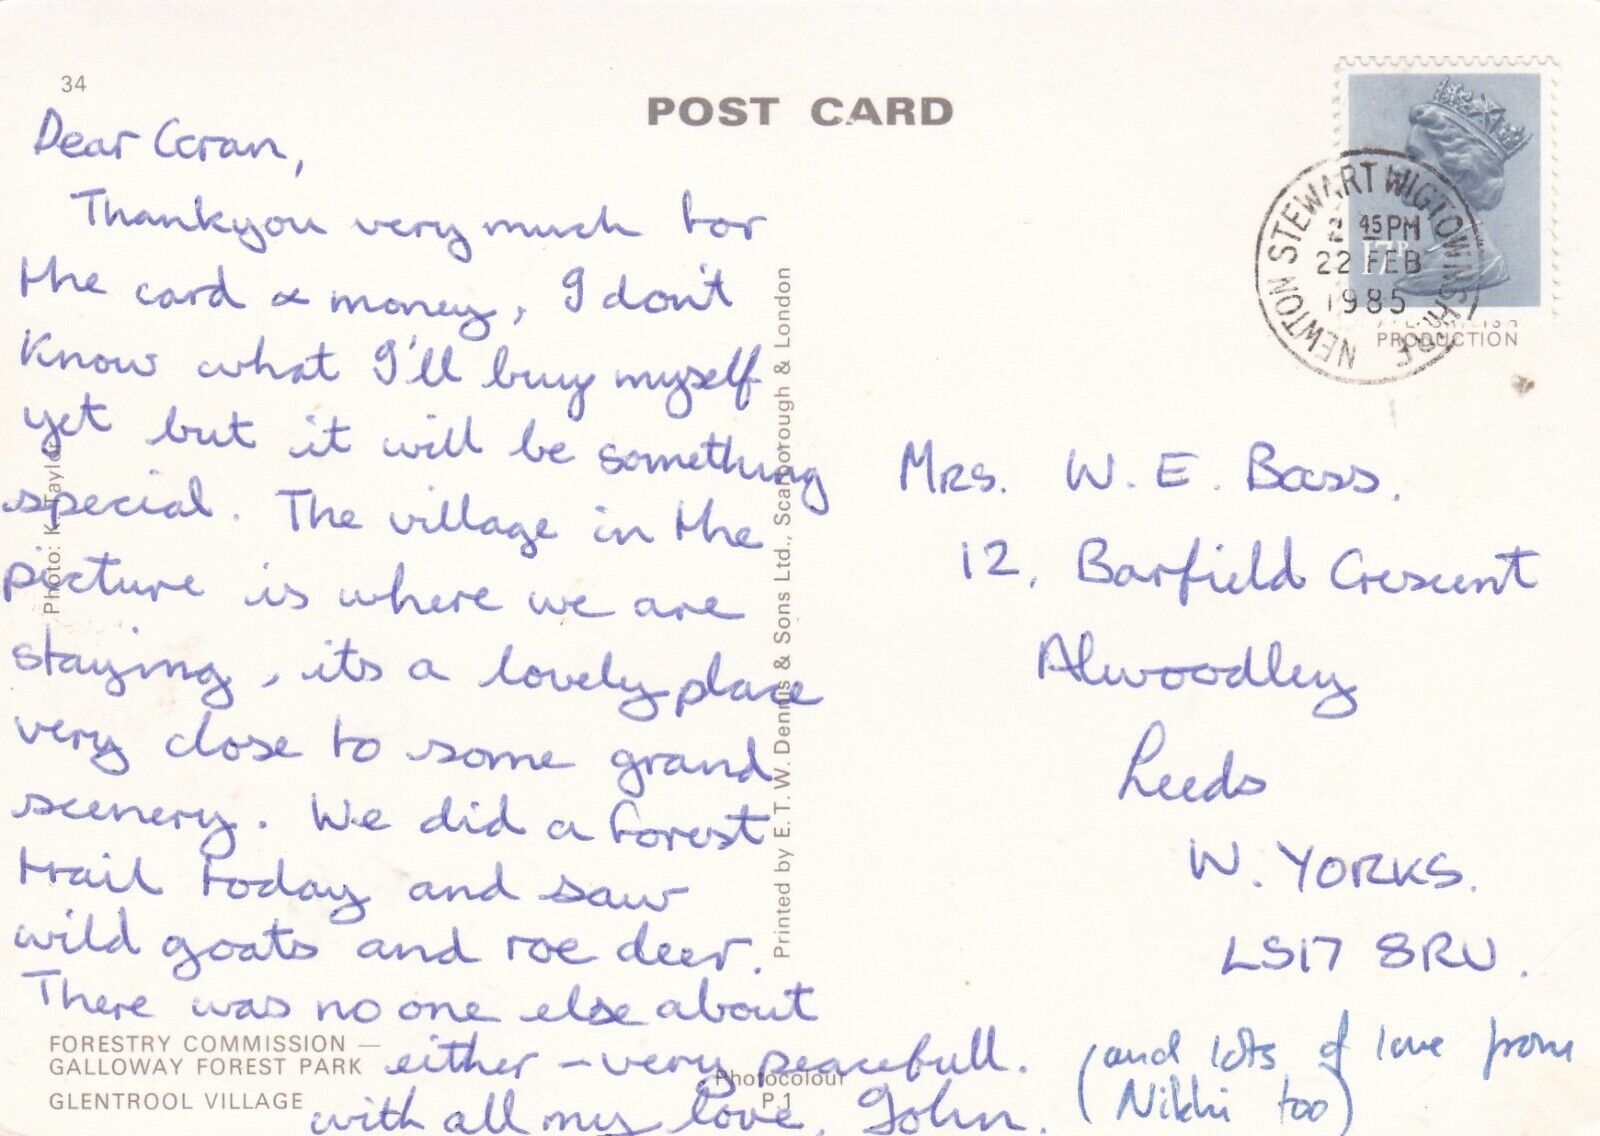 34
POST CARD
Dear Gran,
Thankyou very much for
the card & money, I don't
know what I'll buy myself
yet but it will be something
special. The village in the
picture is where we are
staying, its a lovely place
very close to some grand
scenery. We did a forest
trail today and saw
wild goats and roe deer.
There was no one else about
either - very peacefull.
with all my love, John.
(and lots of love from
Nikki too)
Photo: K. Taylor
Printed by E. T. W. Dennis & Sons Ltd., Scarborough & London
FORESTRY COMMISSION —
GALLOWAY FOREST PARK
GLENTROOL VILLAGE
Photocolour
P.1
NEWTON STEWART WIGTOWNSHIRE
2 45 PM
22 FEB
1985
17P
PRODUCTION
Mrs. W. E. Bass.
12, Barfield Crescent
Alwoodley
Leeds
W. YORKS.
LS17 8RU.